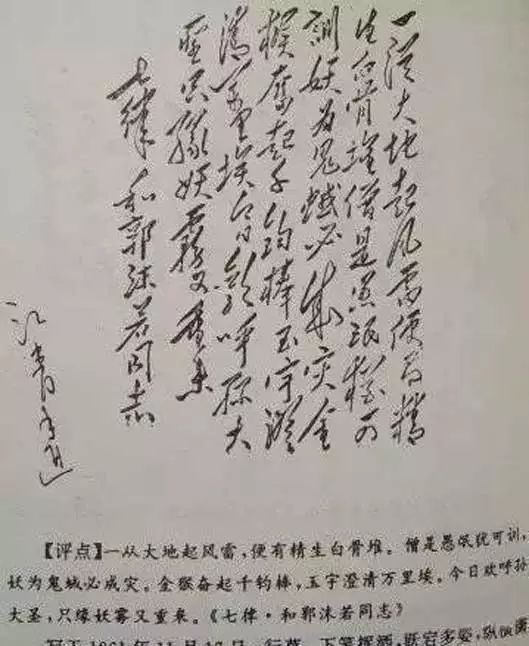 一從大地起风雷便有精
生白骨堆僧是愚氓犹可
訓妖为鬼蜮必成灾金
猴奮起千鈞棒玉宇澄
清萬里埃今日歡呼孫大
聖只緣妖霧又重来
七律 和郭沫若同志
江青手迹
【评点】一从大地起风雷,便有精生白骨堆。僧是愚氓犹可训,
妖为鬼蜮必成灾。金猴奋起千钧棒,玉宇澄清万里埃。今日欢呼孙
大圣,只缘妖雾又重来。《七律·和郭沫若同志》
写于1961年11月17日。行草。下笔挥洒,跌宕多姿,